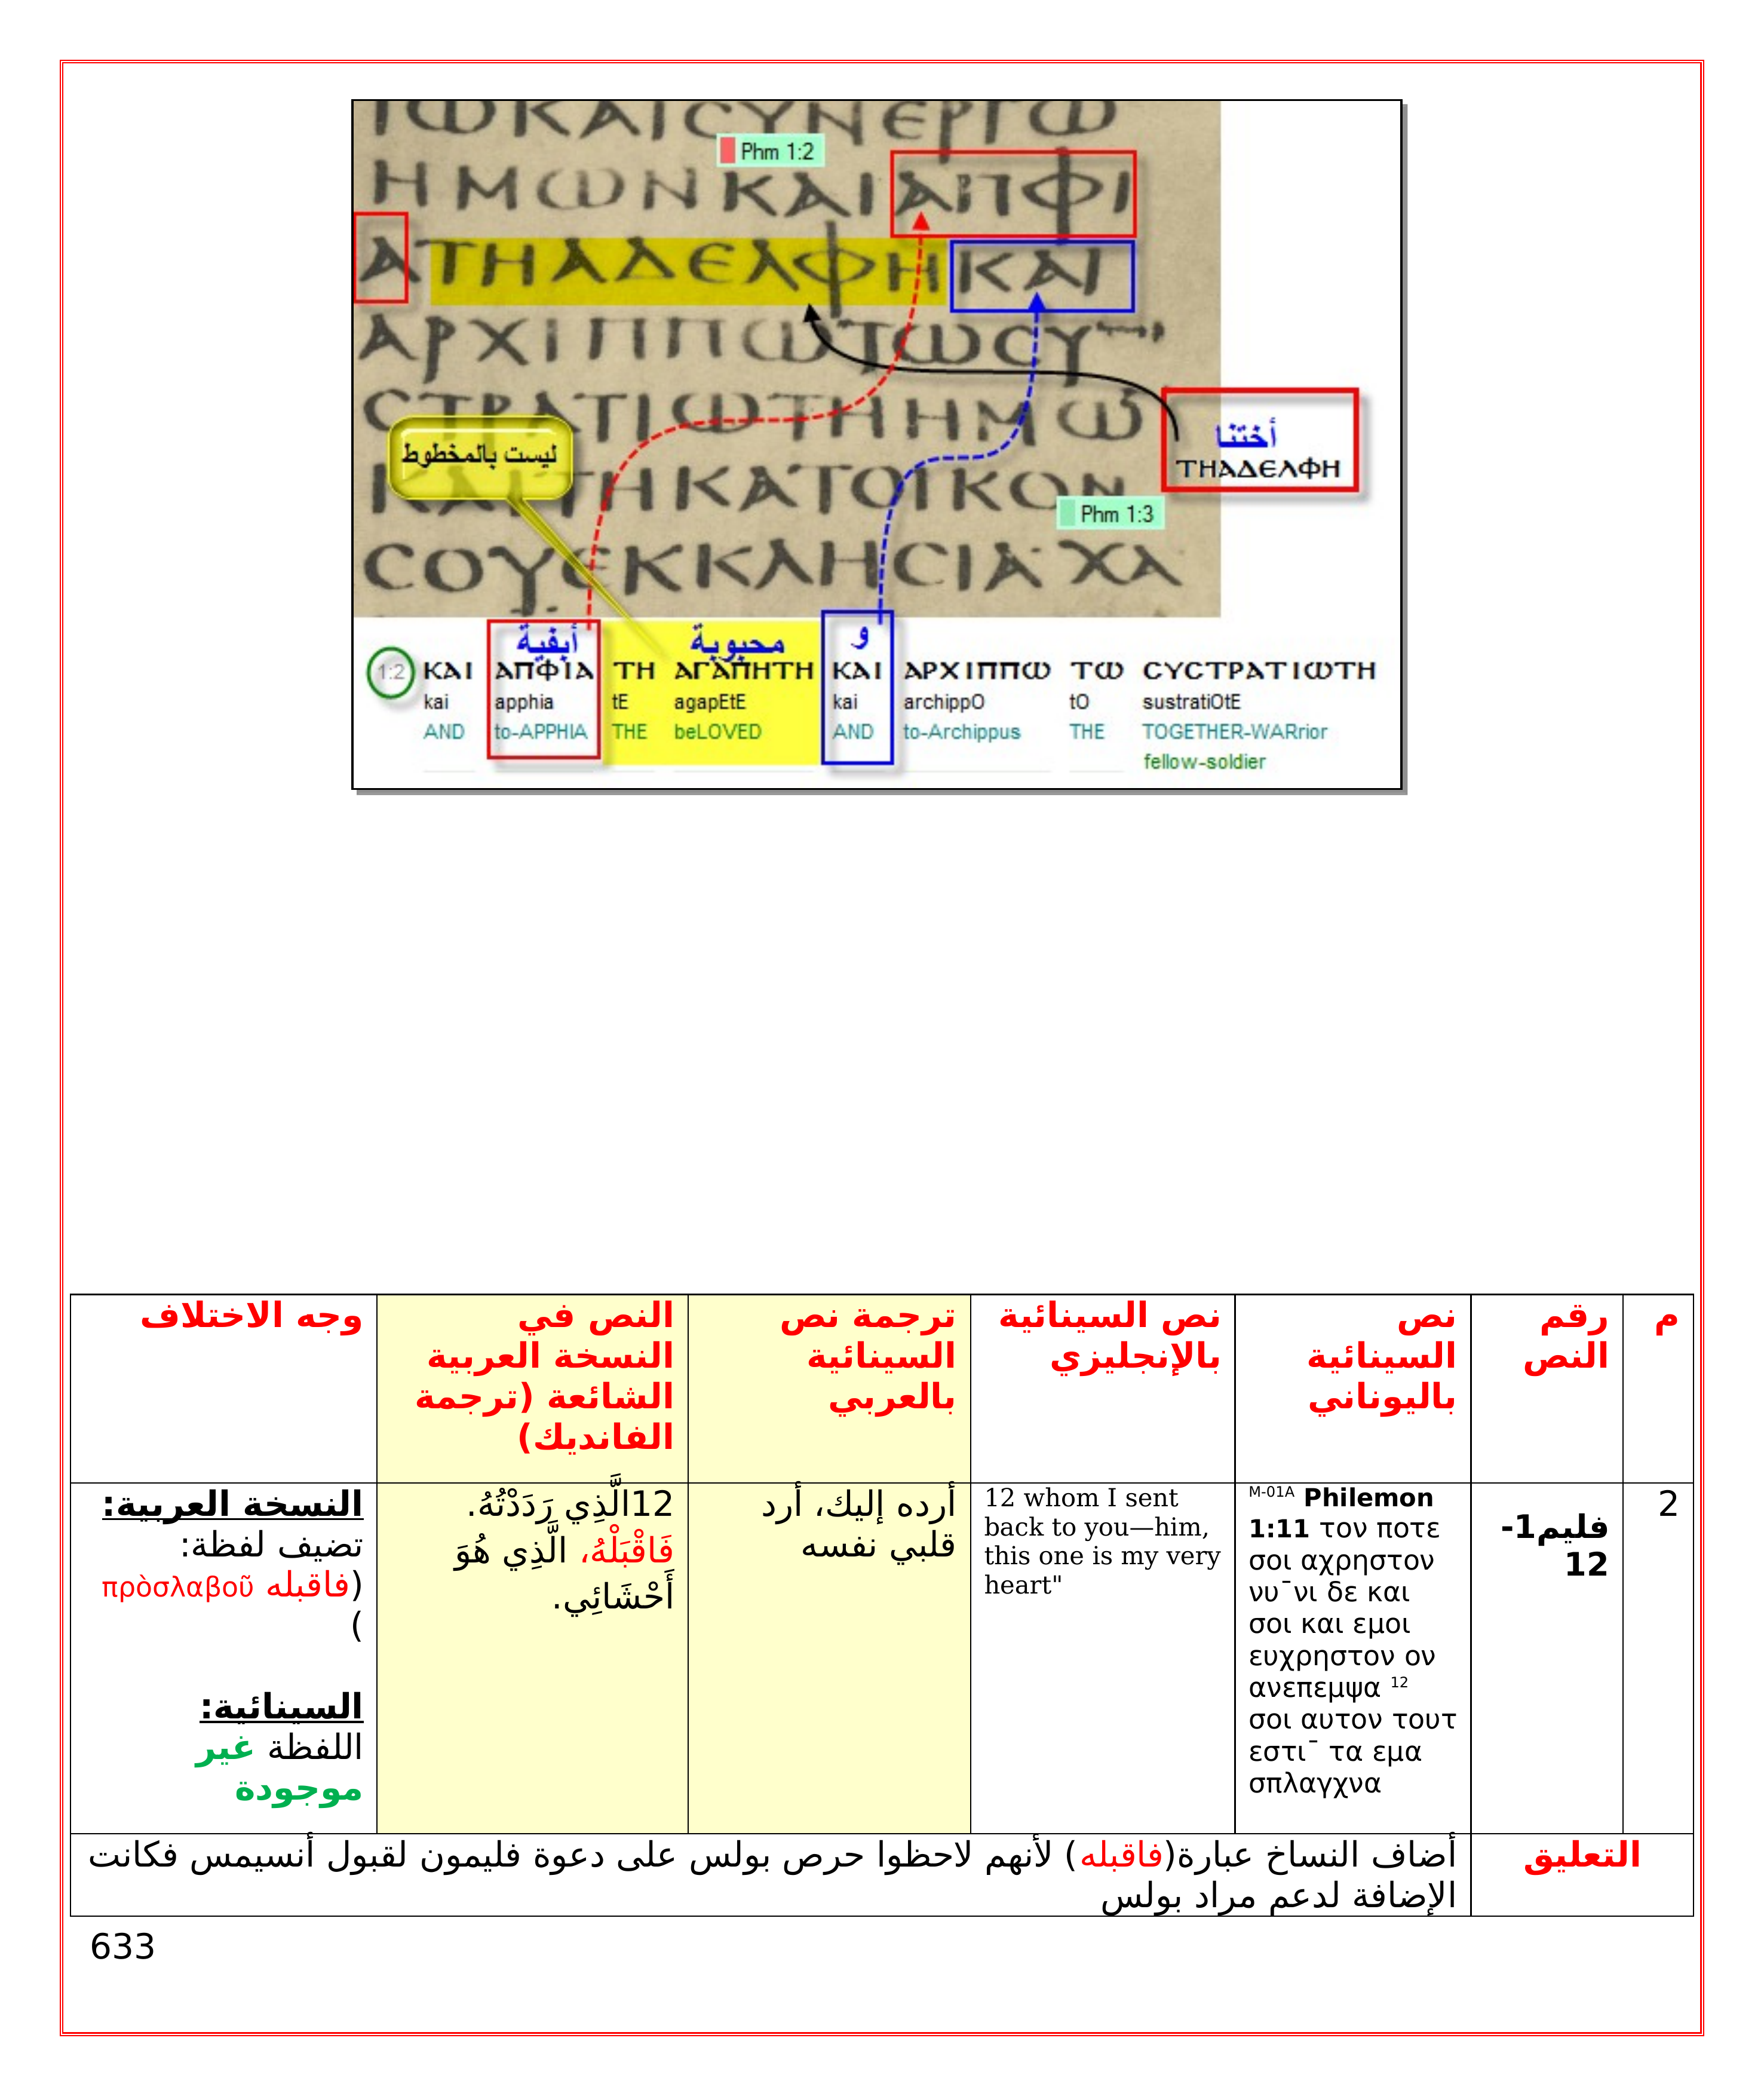 ΙΩΚΑΙСΥΝΕΡΓΩ
Phm 1:2
ΗΜΩΝΚΑΙΑΠΦΙ
ΑΤΗΑΔΕΛΦΗΚΑΙ
ΑΡΧΙΠΠΩΤΩСΥ
СΤΡΑΤΙΩΤΗΗΜΩ
أختنا
ΤΗΑΔΕΛΦΗ
ليست بالمخطوط
ΚΑΙΤΗΚΑΤΟΙΚΟΝ
Phm 1:3
СΟΥΕΚΚΛΗСΙΑ·ΧΑ
أبفية محبوبة و
1:2 ΚΑΙ ΑΠΦΙΑ ΤΗ ΑΓΑΠΗΤΗ ΚΑΙ ΑΡΧΙΠΠΩ ΤΩ СΥСΤΡΑΤΙΩΤΗ
kai apphia tE agapEtE kai archippO tO sustratiOtE
AND to-APPHIA THE beLOVED AND to-Archippus THE TOGETHER-WARrior
fellow-soldier
م
رقم
النص
نص
السينائية
باليوناني
نص السينائية
بالإنجليزي
ترجمة نص
السينائية
بالعربي
النص في
النسخة العربية
الشائعة (ترجمة
الفانديك)
وجه الاختلاف
2
فليم1-
12
M-01A Philemon
1:11 τον ποτε
σοι αχρηστον
νυ¯νι δε και
σοι και εμοι
ευχρηστον ον
ανεπεμψα 12
σοι αυτον τουτ
εστι¯ τα εμα
σπλαγχνα
12 whom I sent
back to you—him,
this one is my very
heart"
أرده إليك، أرد
قلبي نفسه
12الَّذِي رَدَدْتُهُ.
فَاقْبَلْهُ، الَّذِي هُوَ
أَحْشَائِي.
النسخة العربية:
تضيف لفظة:
(فاقبله πρὸσλαβοῦ
)
السينائية:
اللفظة غير
موجودة
التعليق
أضاف النساخ عبارة(فاقبله) لأنهم لاحظوا حرص بولس على دعوة فليمون لقبول أنسيمس فكانت
الإضافة لدعم مراد بولس
633